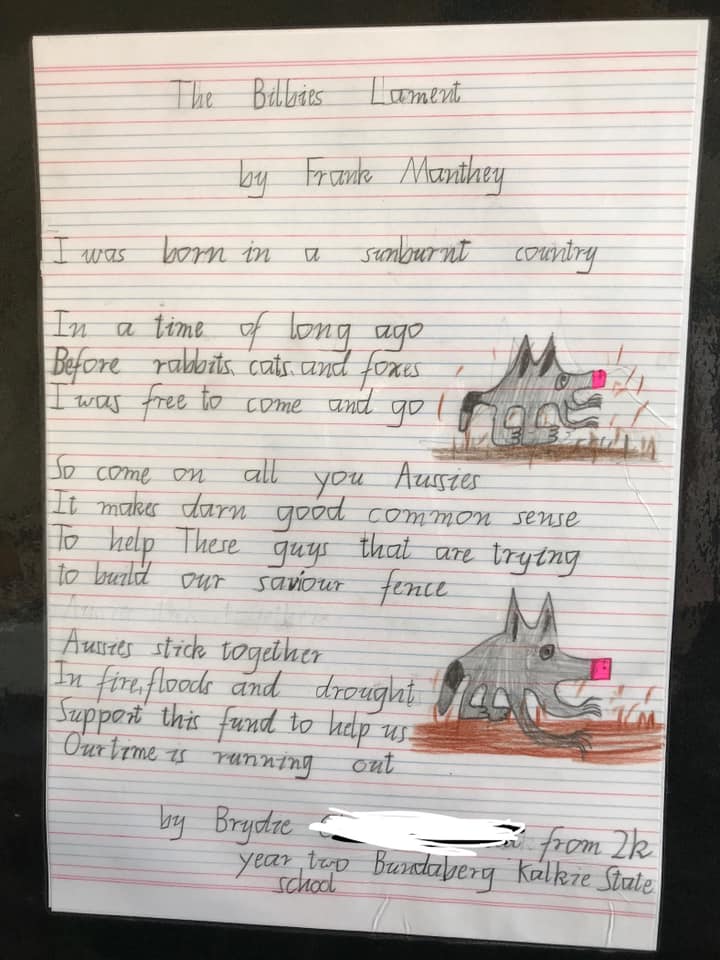 The Bilbies Lament
by Frank Manthey
I was born in a sunburnt country
In a time of long ago
Before rabbits, cats, and foxes
I was free to come and go
So come on all you Aussies
It makes darn good common sense
To help These guys that are trying
to build our saviour fence
Aussies stick together
In fire, floods and drought
Support this fund to help us
Our time is running out
by Brydie from 2k
year two Bundaberg Kalkie State
school